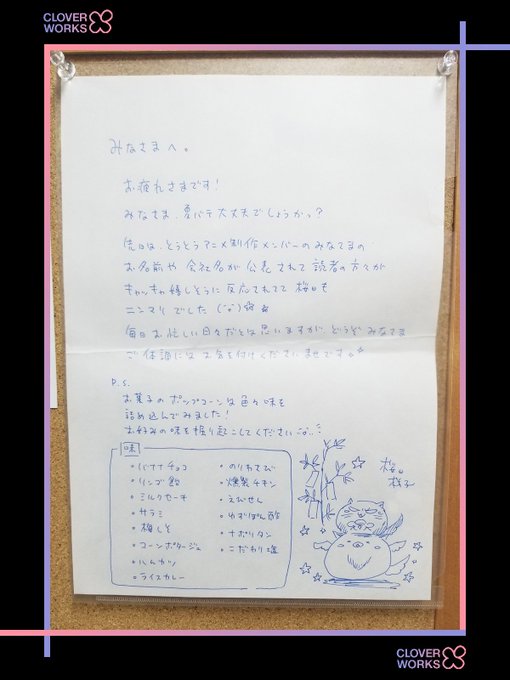 CLOVER
WORKS
みなさまへ。
お疲れさまです！
みなさま、夏バテ大丈夫でしょうかっ？
先日は、とうとうアニメ制作メンバーのみなさまの
お名前や会社名が公表されて読者の方々が
キャッキャ嬉しそうに反応されてて桜日も
ニンマリでした
毎日お忙しい日々だとは思いますが、どうぞみなさま
ご体調にはお気を付けくださいませです。
P.S.
お菓子のポップコーンは色々味を
詰め込んでみました！
お好みの味を掘り起こしてください
味
・バナナチョコ
・リンゴ飴
・ミルクセーキ
・サラミ
・梅しそ
・コーンポタージュ
・ハムカツ
・ライスカレー
・のりわさび
・燻製チキン
・えびせん
・ゆずぽん酢
・ナポリタン
・こだわり塩
桜日
梯子
CLOVER
WORKS